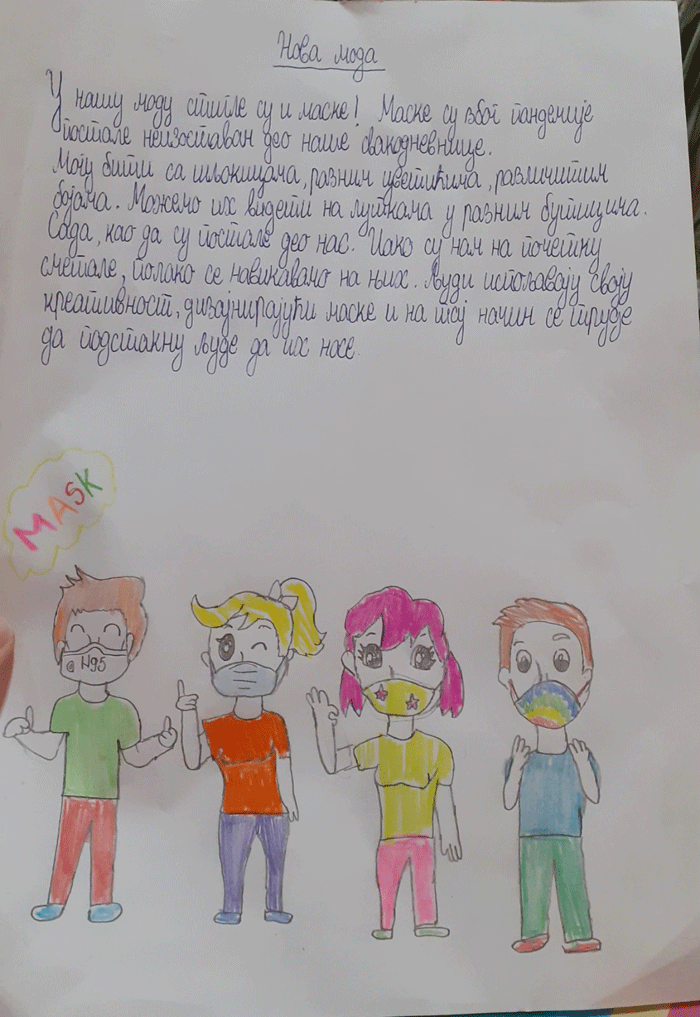 Нова мода
У нашу моду стигле су и маске! Маске су због пандемије
постале неизоставан део наше свакодневнице.
Могу бити са шљокицама, разним цветићима, различитим
бојама. Можемо их видети на луткама у разним бутицима.
Сада, као да су постале део нас. Иако су нам на почетку
сметале, полако се навикавамо на њих. Људи испољавају своју
креативност, дизајнирајући маске и на тај начин се труде
да подстакну људе да их носе.
MASK
@ N95